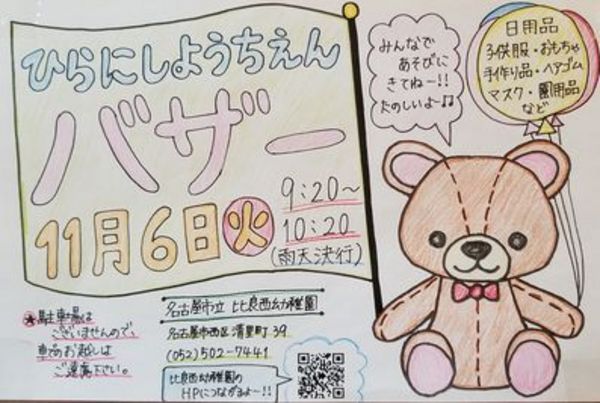 ひらにしようちえん
バザー
11月6日火
9:20〜
10:20
(雨天決行)
みんなで
あそびに
きてねー!!
たのしいよ〜♫
日用品
子供服・おもちゃ
手作り品・ヘアゴム
マスク・園用品
など
★駐車場は
ございませんので、
車でのお越しは
ご遠慮下さい。
名古屋市立 比良西幼稚園
名古屋市西区清里町39
(052)502-7441
比良西幼稚園の
HPにつながるよ〜!!